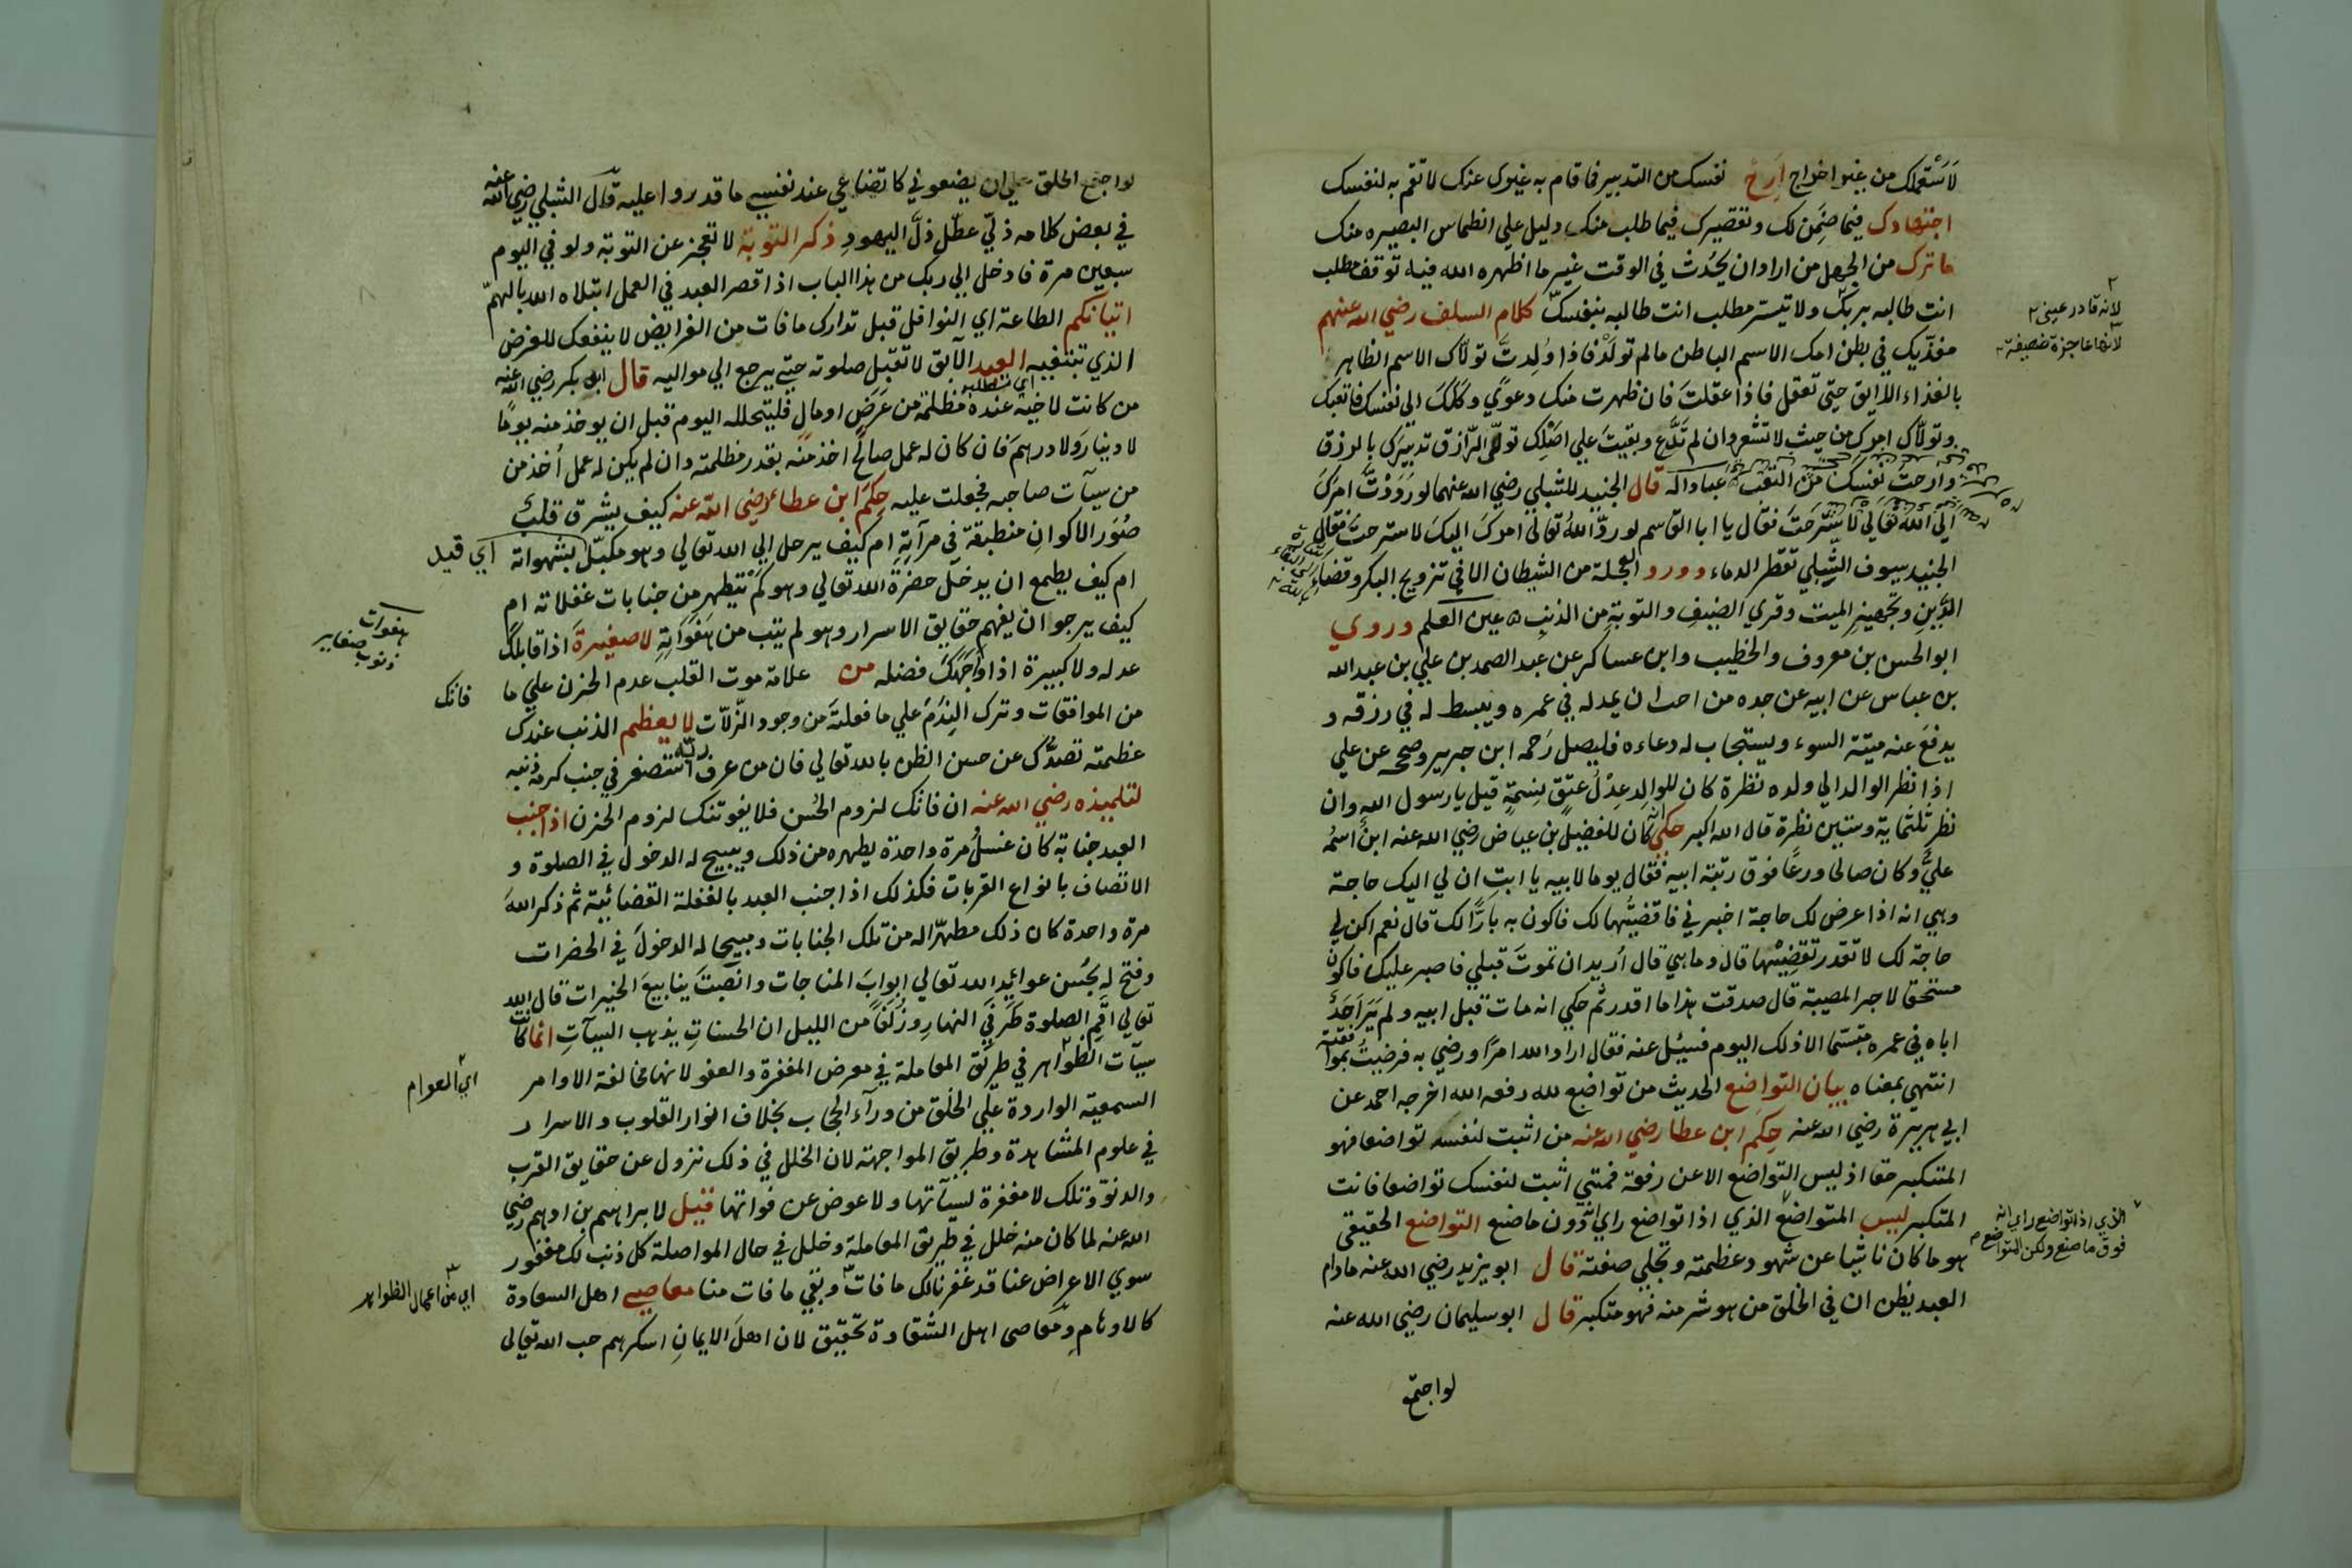 لاستعملك من غير اخراج ارح نفسك من التدبير فما قام به غيرك عنك لا تقم به لنفسك
اجتهادك فيما ضمن لك وتقصيرك فيما طلب منك دليل علي انطماس البصيره منك
ما ترك من الجهل من اراد ان يحدث في الوقت غير ما اظهره الله فيه توقف مطلب
انت طالبه بربك ولا تيسر مطلب انت طالبه بنفسك كلام السلف رضي الله عنهم
مغذيك في بطن امك الاسم الباطن مالم تولد فاذا ولدت تولاك الاسم الظاهر
بالغذاء اللايق حتي تعقل فاذا عقلت فان ظهرت منك دعوي وكلك الي نفسك فاتعبك
وتولاك امرك من حيث لا تشعر وان لم تدع وبقيت علي اصلك تولي الرازق تدبيرك بالرزق
وارحت نفسك من التعب قال الجنيد للشبلي رضي الله عنهما لو رددت امرك
الي الله تعالي لاسترحت فقال يا ابا القاسم لو رد الله تعالي امرك اليك لاسترحت فقال
الجنيد سيوف الشبلي تقطر الدماء وورد العجلة من الشيطان الا في تزويج البكر وقضاء
الدين وتجهيز الميت وقري الضيف والتوبة من الذنب عين العلم وروي
ابو الحسن بن معروف والخطيب وابن عساكر عن عبد الصمد بن علي بن عبد الله
بن عباس عن ابيه عن جده من احب ان يمد له في عمره ويبسط له في رزقه و
يدفع عنه ميتة السوء ويستجاب له دعاءه فليصل رحمه ابن جرير وصححه عن علي
اذا نظر الوالد الي ولده نظرة كان للوالد عدل عتق نسمة قيل يا رسول الله وان
نظر ثلثماية وستين نظرة قال الله اكبر حكي انه كان للفضيل بن عياض رضي الله عنه ابن اسمه
علي وكان صالحا ورعا فوق رتبة ابيه فقال يوما لابيه يا ابت ان لي اليك حاجة
وهي انه اذا عرض لك حاجة اخبرني فاقضيها لك فاكون به بارا لك قال نعم لكن لي
حاجة لك لا تقدر تقضيها قال وما هي قال اريد ان تموت قبلي فاصبر عليك فاكون
مستحقا لاجر المصيبة قال صدقت هذا ما اقدر ثم حكي انه مات قبل ابيه ولم ير احد
اباه في عمره متبسما الا ذلك اليوم فسئل عنه فقال اراد الله امرا ورضي به فرضيت بموافقته
انتهي بمعناه بيان التواضع الحديث من تواضع لله رفعه الله اخرجه احمد عن
ابي هريرة رضي الله عنه حكم ابن عطا رضي الله عنه من اثبت لنفسه تواضعا فهو
المتكبر حقا اذ ليس التواضع الا عن رفعة فمتي اثبت لنفسك تواضعا فانت
المتكبر ليس المتواضع الذي اذا تواضع راي انه دون ما صنع التواضع الحقيقي
هو ما كان ناشيا عن شهود عظمته وتجلي صفته قال ابو يزيد رضي الله عنه مادام
العبد يظن ان في الخلق من هو شر منه فهو متكبر قال ابو سليمان رضي الله عنه
لو اجتمع
لانه قادر عيني
لانها عاجزة ضعيفة
الذي اذا تواضع راي انه
فوق ما صنع ولكن المتواضع
لو اجتمع الخلق علي ان يضعوني كاتضاعي عند نفسي ما قدروا عليه قال الشبلي رضي الله عنه
في بعض كلامه ذلي عطل ذل اليهود ذكر التوبة لا تعجز عن التوبة ولو في اليوم
سبعين مرة فادخل الي ربك من هذا الباب اذا قصر العبد في العمل ابتلاه الله بالهم
اتيانكم الطاعة اي النوافل قبل تدارك ما فات من الفرايض لا ينفعك للغرض
الذي تبتغيه العبد الآبق لا تقبل صلوته حتي يرجع الي مواليه قال ابو بكر رضي الله عنه
من كانت لاخيه عنده مظلمة من عرض او مال فليتحلله اليوم قبل ان يوخذ منه يوما
لا دينار ولا درهم فان كان له عمل صالح اخذ منه بقدر مظلمته وان لم يكن له عمل اخذ من
من سيآت صاحبه فجعلت عليه حكم ابن عطاء رضي الله عنه كيف يشرق قلب
صور الاكوان منطبقة في مرآته ام كيف يرحل الي الله تعالي وهو مكبل بشهواته
اي قيد
ام كيف يطمع ان يدخل حضرة الله تعالي وهو لم يتطهر من جنابات غفلاته ام
كيف يرجو ان يفهم حقايق الاسرار وهو لم يتب من هفواته لا صغيرة اذا قابلك
هفوات
ذنوب صغاير
عدله ولا كبيرة اذا واجهك فضله من علامة موت القلب عدم الحزن علي ما
فاتك
من الموافقات وترك الندم علي ما فعلته من وجود الزلات لا يعظم الذنب عندك
عظمته تصدك عن حسن الظن بالله تعالي فان من عرف ربه استصغر في جنب كرمه ذنبه
لتلميذه رضي الله عنه ان فاتك لزوم الحسن فلا يفوتنك لزوم الحزن اذا اجنب
العبد جنابة كان غسل مرة واحدة يطهره من ذلك ويبيح له الدخول في الصلوة و
الاتصاف بانواع القربات فكذلك اذا اجنب العبد بالغفلة القضائية ثم ذكر الله
مرة واحدة كان ذلك مطهرا له من تلك الجنابات ومبيحا له الدخول في الحضرات
وفتح له بحسن عوائد الله تعالي ابواب المناجات وانصبت ينابيع الخيرات قال الله
تعالي اقم الصلوة طرفي النهار وزلفا من الليل ان الحسنات يذهب السيآت انما كانت
سيآت الظواهر في طريق المعاملة في معرض المغفرة والعفو لانها مخالفة الاوامر
اي العوام
السمعية الواردة علي الخلق من وراء الحجاب بخلاف انوار القلوب والاسرار
في علوم المشاهدة وطريق المواجهة لان الخلل في ذلك نزول عن حقايق القرب
والدنو وتلك لا مغفرة لسيآتها ولا عوض عن فواتها قيل لابراهيم بن ادهم رضي
الله عنه لما كان منه خلل في طريق المعاملة وخلل في حال المواصلة كل ذنب لك مغفور
سوي الاعراض عنا قد غفرنا لك ما فات وبقي ما فات منا معاصي اهل السعادة
اي من اعمال الظواهر
كالاوهام ومعاصي اهل الشقاوة تحقيق لان اهل الايمان اسكرهم حب الله تعالي